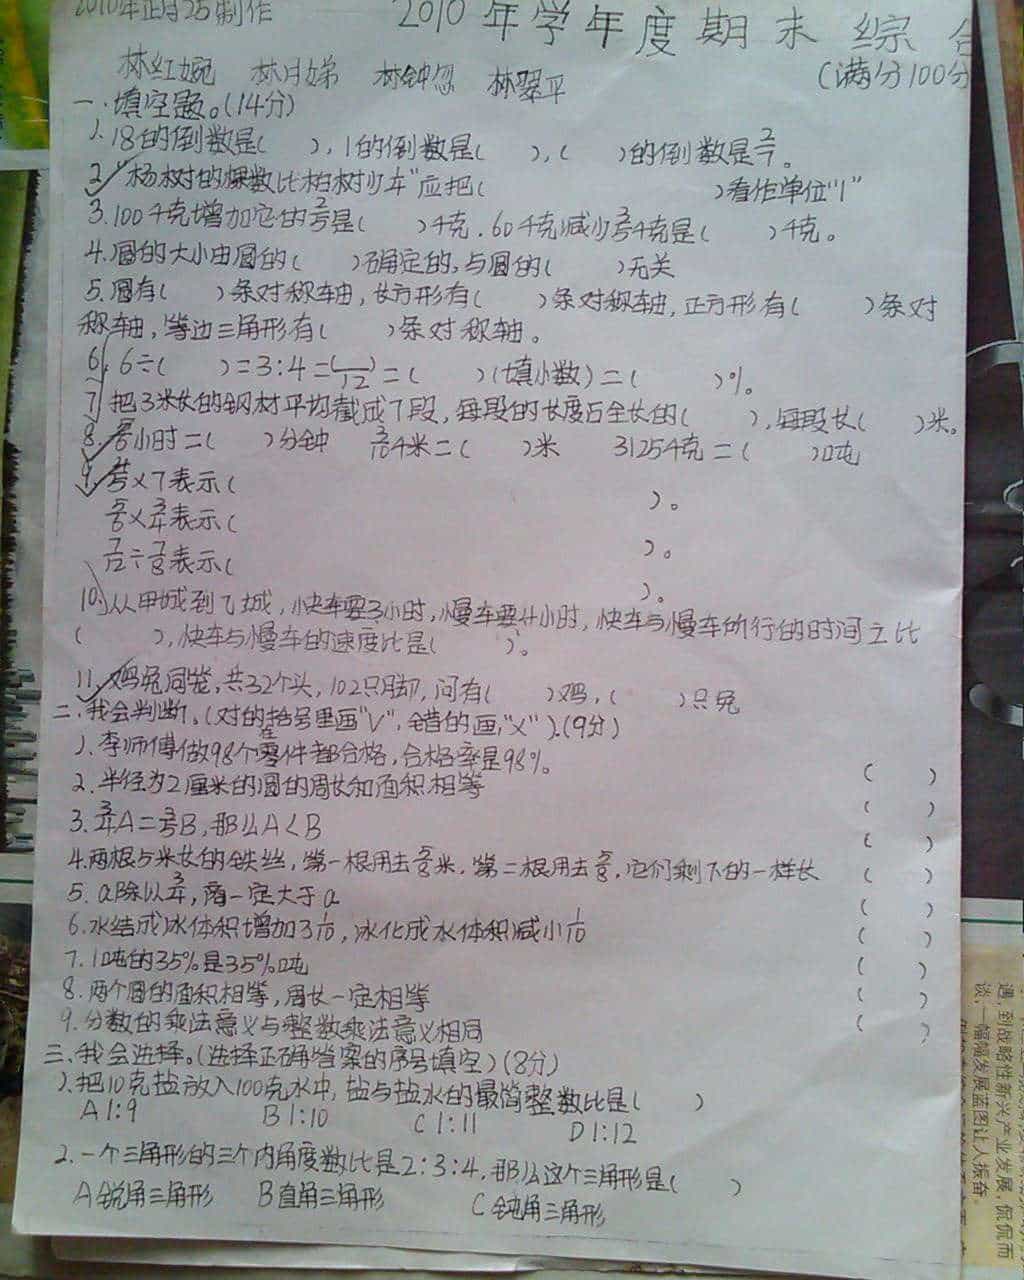 2010年正月25制作
2010年学年度期末综合
(满分100分
林红婉 林月娣 林钟忽 林翠平
一、填空题。(14分)
1. 18的倒数是( ), 1的倒数是( ), ( )的倒数是2/7。
2. "杨树的棵数比柏树少本"应把( )看作单位"1"
3. 100千克增加它的2/5是( )千克. 60千克减少3/5千克是( )千克。
4. 圆的大小由圆的( )确定的, 与圆的( )无关
5. 圆有( )条对称轴, 长方形有( )条对称轴, 正方形有( )条对
称轴, 等边三角形有( )条对称轴。
6. 6÷( )=3:4=( )/12=( )(填小数)=( )%。
7. 把3米长的钢材平均截成7段, 每段的长度占全长的( ), 每段长( )米。
8. 小时=( )分钟 3/10千米=( )米 3125千克=( )吨
9. 4/5×7表示( )。
5/6×3/4表示( )。
7/12÷7/8表示( )。
10. 从甲城到乙城, 快车要3小时, 慢车要4小时, 快车与慢车所行的时间之比
( ), 快车与慢车的速度比是( )。
11. 鸡兔同笼, 共32个头, 102只脚, 问有( )鸡, ( )只兔
二. 我会判断。(对的括号里画"√", 错的画"×")(9分)
1. 李师傅做98个零件全都合格, 合格率是98%。 ( )
2. 半径为2厘米的圆的周长和面积相等 ( )
3. 3/4A=3/5B, 那么A<B ( )
4. 两根5米长的铁丝, 第一根用去5/8米, 第二根用去5/8, 它们剩下的一样长 ( )
5. a除以3/4, 商一定大于a ( )
6. 水结成冰体积增加了1/10, 冰化成水体积减小1/10 ( )
7. 1吨的35%是35%吨 ( )
8. 两个圆的面积相等, 周长一定相等 ( )
9. 分数的乘法意义与整数乘法意义相同 ( )
三. 我会选择。(选择正确答案的序号填空)(8分)
1. 把10克盐放入100克水中, 盐与盐水的最简整数比是( )
A 1:9 B 1:10 C 1:11 D 1:12
2. 一个三角形的三个内角度数比是2:3:4, 那么这个三角形是( )
A 锐角三角形 B 直角三角形 C 钝角三角形
遇, 到战略性新兴产业发展, 侃侃而
谈; 一幅幅发展蓝图让人振奋。